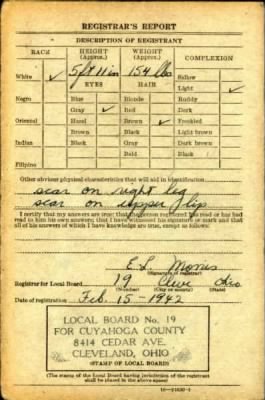 REGISTRAR'S REPORT
DESCRIPTION OF REGISTRANT
RACE HEIGHT (Approx.) WEIGHT (Approx.) COMPLEXION
White ✓ 5 ft 11 in 154 lbs Sallow
EYES HAIR Light ✓
Negro Blue Blonde Ruddy
Gray ✓ Red Dark
Oriental Hazel Brown ✓ Freckled
Brown Black Light brown
Indian Black Gray Dark brown
Bald Black
Filipino
Other obvious physical characteristics that will aid in identification
scar on right leg
scar on upper lip
I certify that my answers are true; that the person registered has read or has had
read to him his own answers; that I have witnessed his signature or mark and that
all of his answers of which I have knowledge are true, except as follows:
E. L. Morris
(Signature of registrar)
Registrar for Local Board 19 Cleve Ohio
(Number) (City or county) (State)
Date of registration Feb. 15-1942
LOCAL BOARD No. 19
FOR CUYAHOGA COUNTY
8414 CEDAR AVE.
CLEVELAND, OHIO
(STAMP OF LOCAL BOARD)
(The stamp of the Local Board having jurisdiction of the registrant
shall be placed in the above space.)